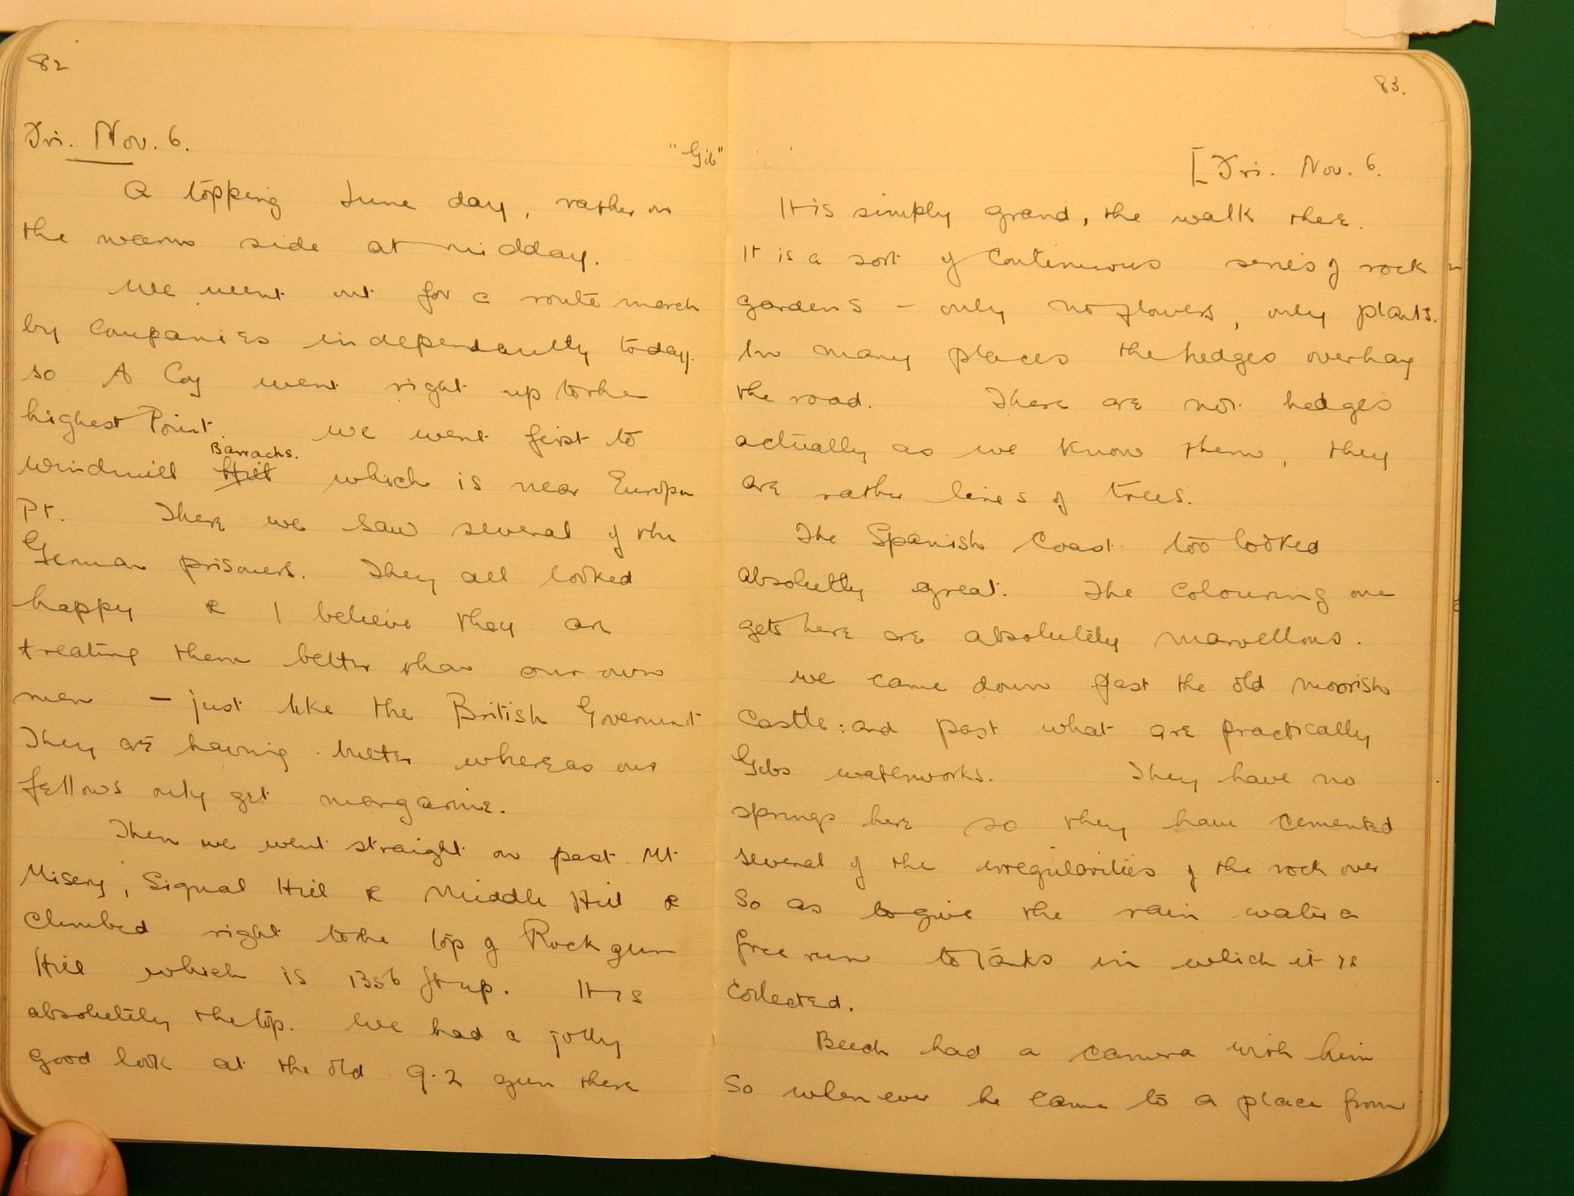 82
Fri. Nov. 6.
"Gib"
A topping June day, rather on
the warm side at midday.
We went out for a route march
by Companies independantly today.
so A Coy went right up to the
highest Point. We went first to
Barracks.
Windmill Hill which is near Europa
Pt. There we saw several of the
German prisoners. They all looked
happy & I believe they are
treating them better than our own
men - just like the British Government
They are having butter whereas our
fellows only get margarine.
Then we went straight on past Mt
Misery, Signal Hill & Middle Hill &
climbed right to the top of Rock gun
Hill which is 1356 ft up. It is
absolutely the top. We had a jolly
good look at the old 9.2 gun there
83.
[Fri. Nov. 6.
It is simply grand, the walk there.
It is a sort of continuous series of rock
gardens - only no flowers, only plants.
In many places the hedges overhang
the road. There are not hedges
actually as we know them, they
are rather lines of trees.
The Spanish Coast too looked
absolutly great. The colouring one
gets here are absolutely marvellous.
We came down past the old Moorish
Castle: and past what are practically
Gibs waterworks. They have no
springs here so they have cemented
several of the irregularities of the rock over
so as to give the rain water a
free run to tanks in which it is
collected.
Beech had a camera with him
So when ever he came to a place from